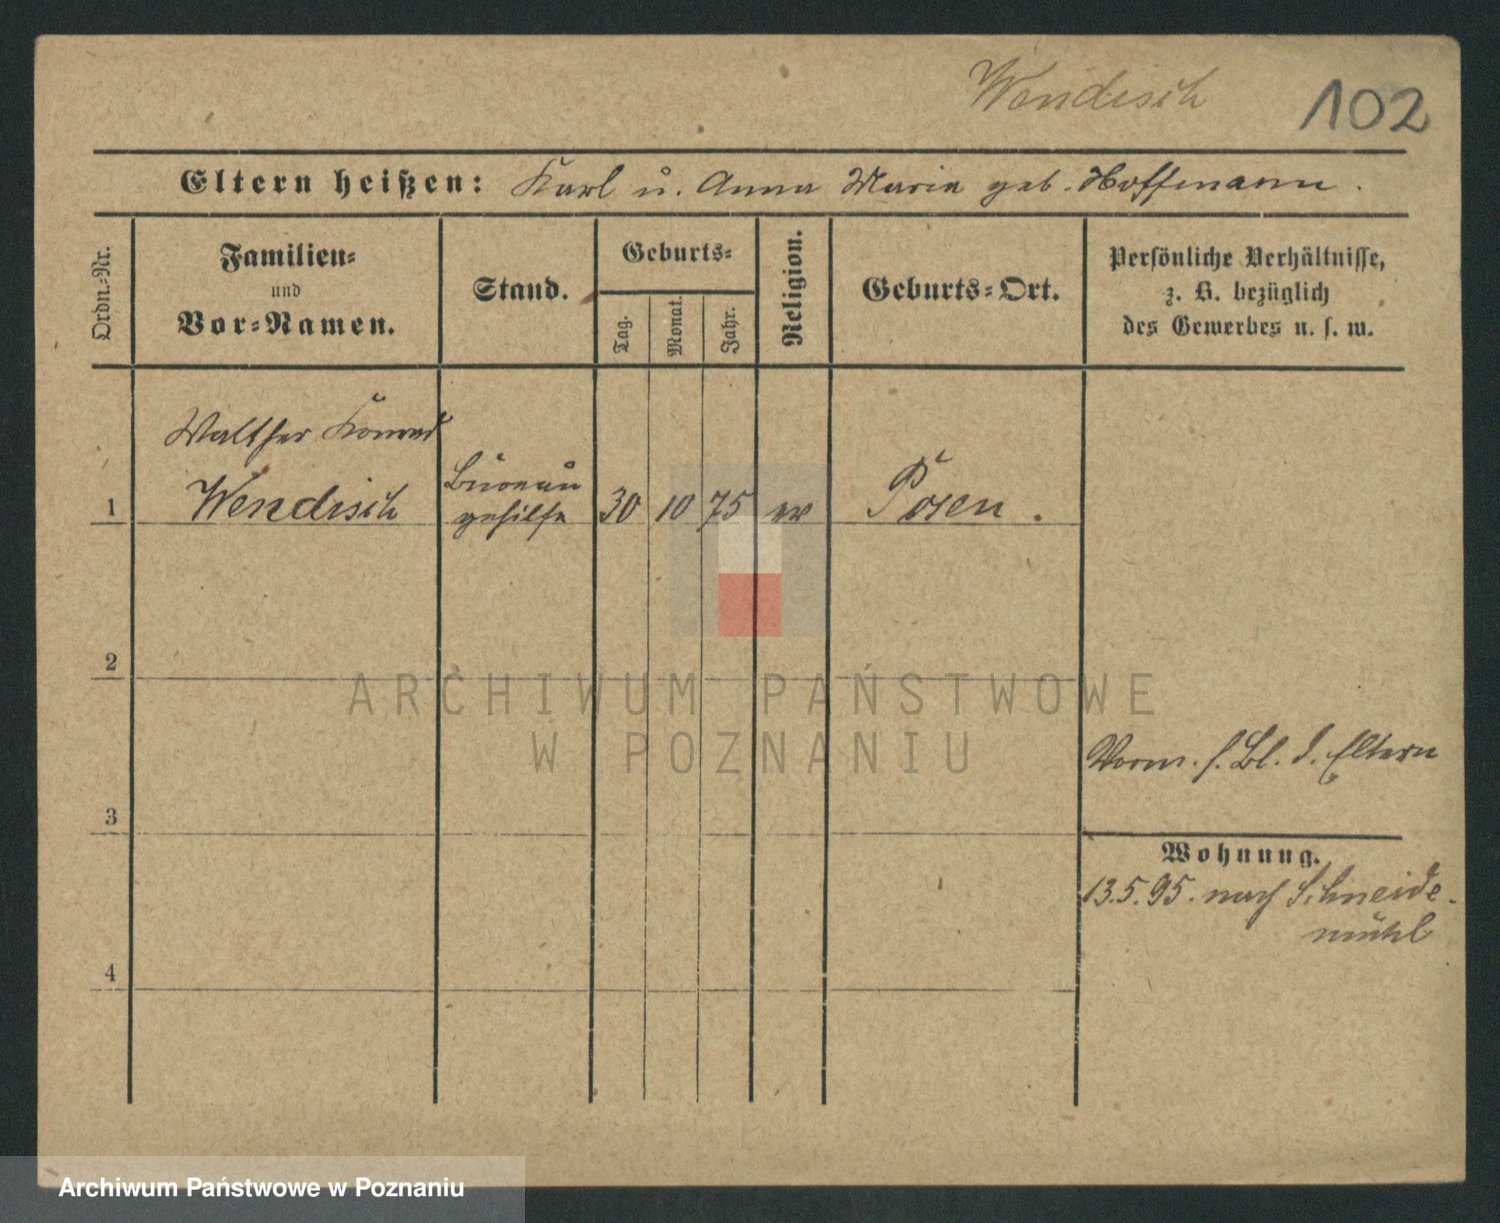 Wendisch 102
Eltern heißen: Karl u. Anna Maria geb. Hoffmann.
Ordn.-Nr.
Familien-
und
Vor-Namen.
Stand.
Geburts-
Tag.
Monat.
Jahr.
Religion.
Geburts-Ort.
Persönliche Verhältnisse,
z. B. bezüglich
des Gewerbes u. s. w.
Walther Konrad
1 Wendisch
Bureau
gehilfe
30 10 75 ev Posen.
2
ARCHIWUM PAŃSTWOWE
W POZNANIU
Vorm. s. Bl. d. Eltern
3
Wohnung.
13.5.95. nach Schneide-
mühl
4
Archiwum Państwowe w Poznaniu